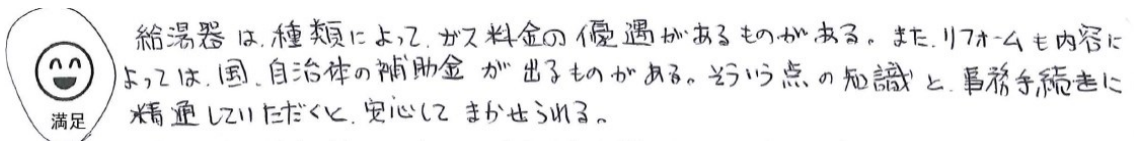 給湯器は、種類によって、ガス料金の優遇があるものがある。また、リフォームも内容に
よっては、国、自治体の補助金が出るものがある。そういう点の知識と、事務手続きに
精通していただくと、安心してまかせられる。
満足